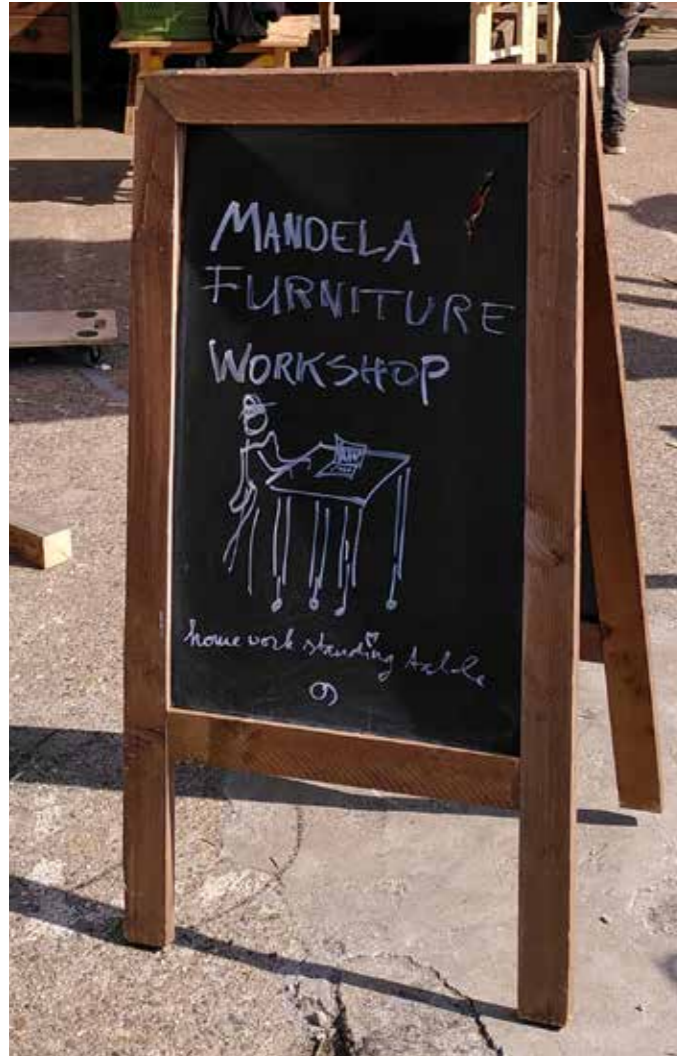 MANDELA
FURNITURE
WORKSHOP
home work standing table